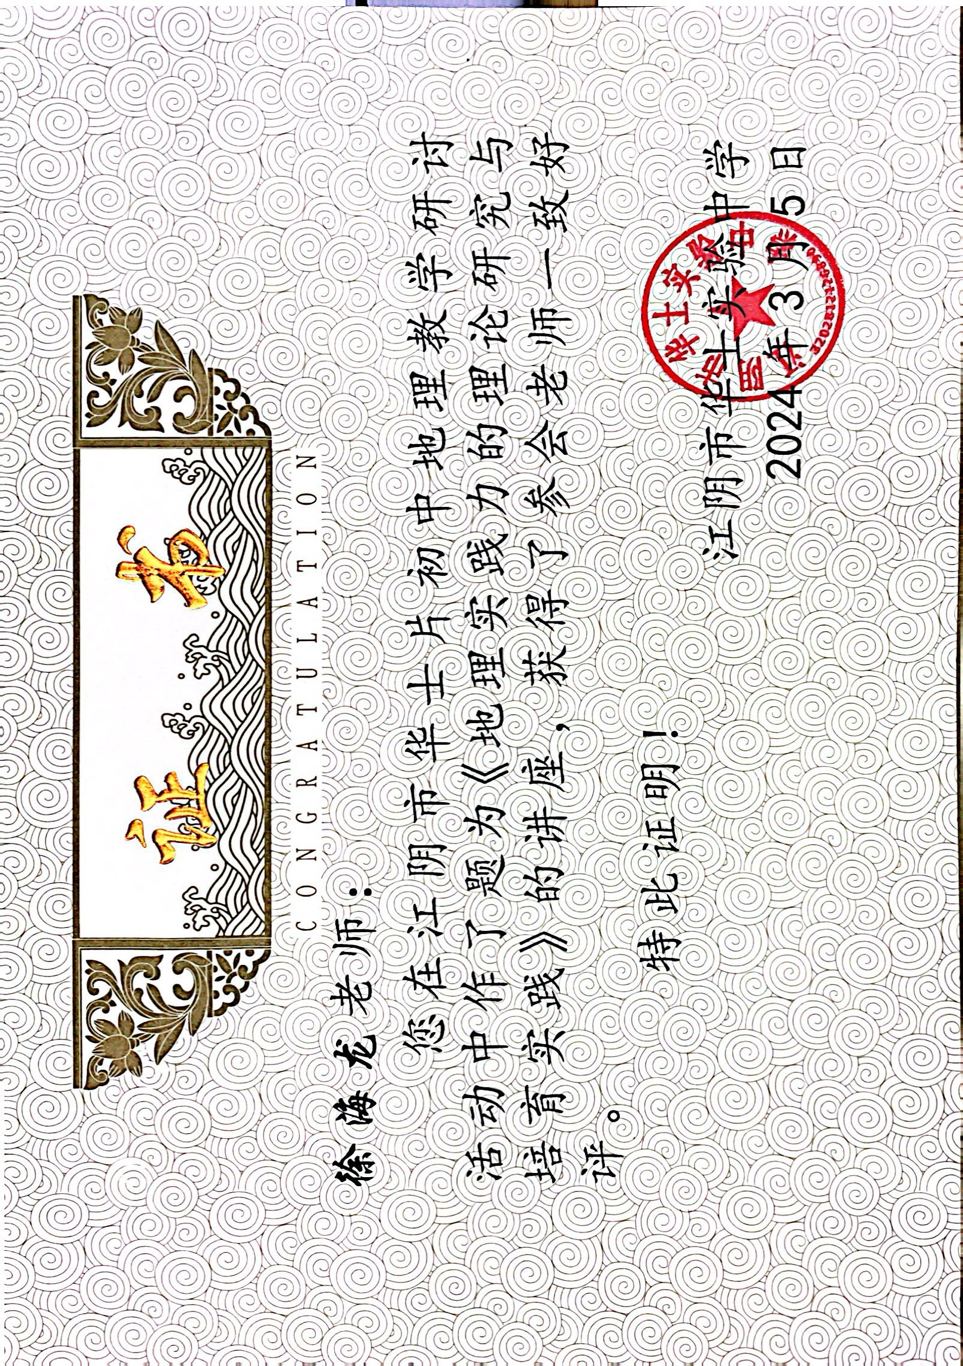 证书
CONGRATULATION
徐海龙老师：
您在江阴市华士片初中地理教学研讨
活动中作了题为《地理实践力的理论研究与
培育实践》的讲座，获得了参会老师一致好
评。
特此证明！
江阴市华士实验中学
2024年3月5日
江阴市华士实验中学